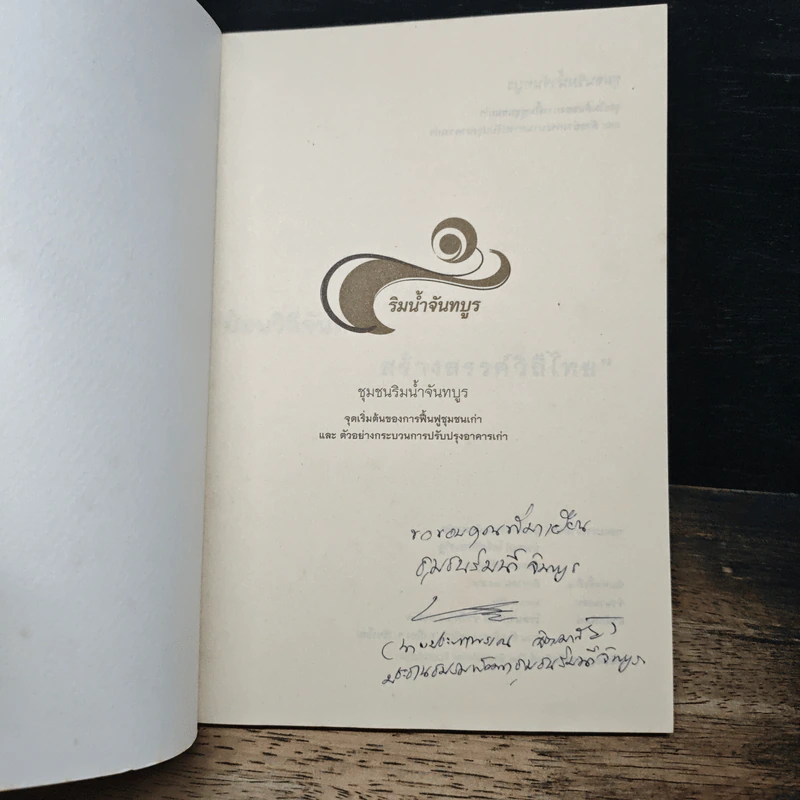 ริมน้ำจันทบูร
ชุมชนริมน้ำจันทบูร
จุดเริ่มต้นของการฟื้นฟูชุมชนเก่า
และ ตัวอย่างกระบวนการปรับปรุงอาคารเก่า
ขอขอบคุณที่มาเยือน
ชุมชนริมน้ำจันทบูร
ประธานชมรมพัฒนาชุมชนริมน้ำจันทบูร